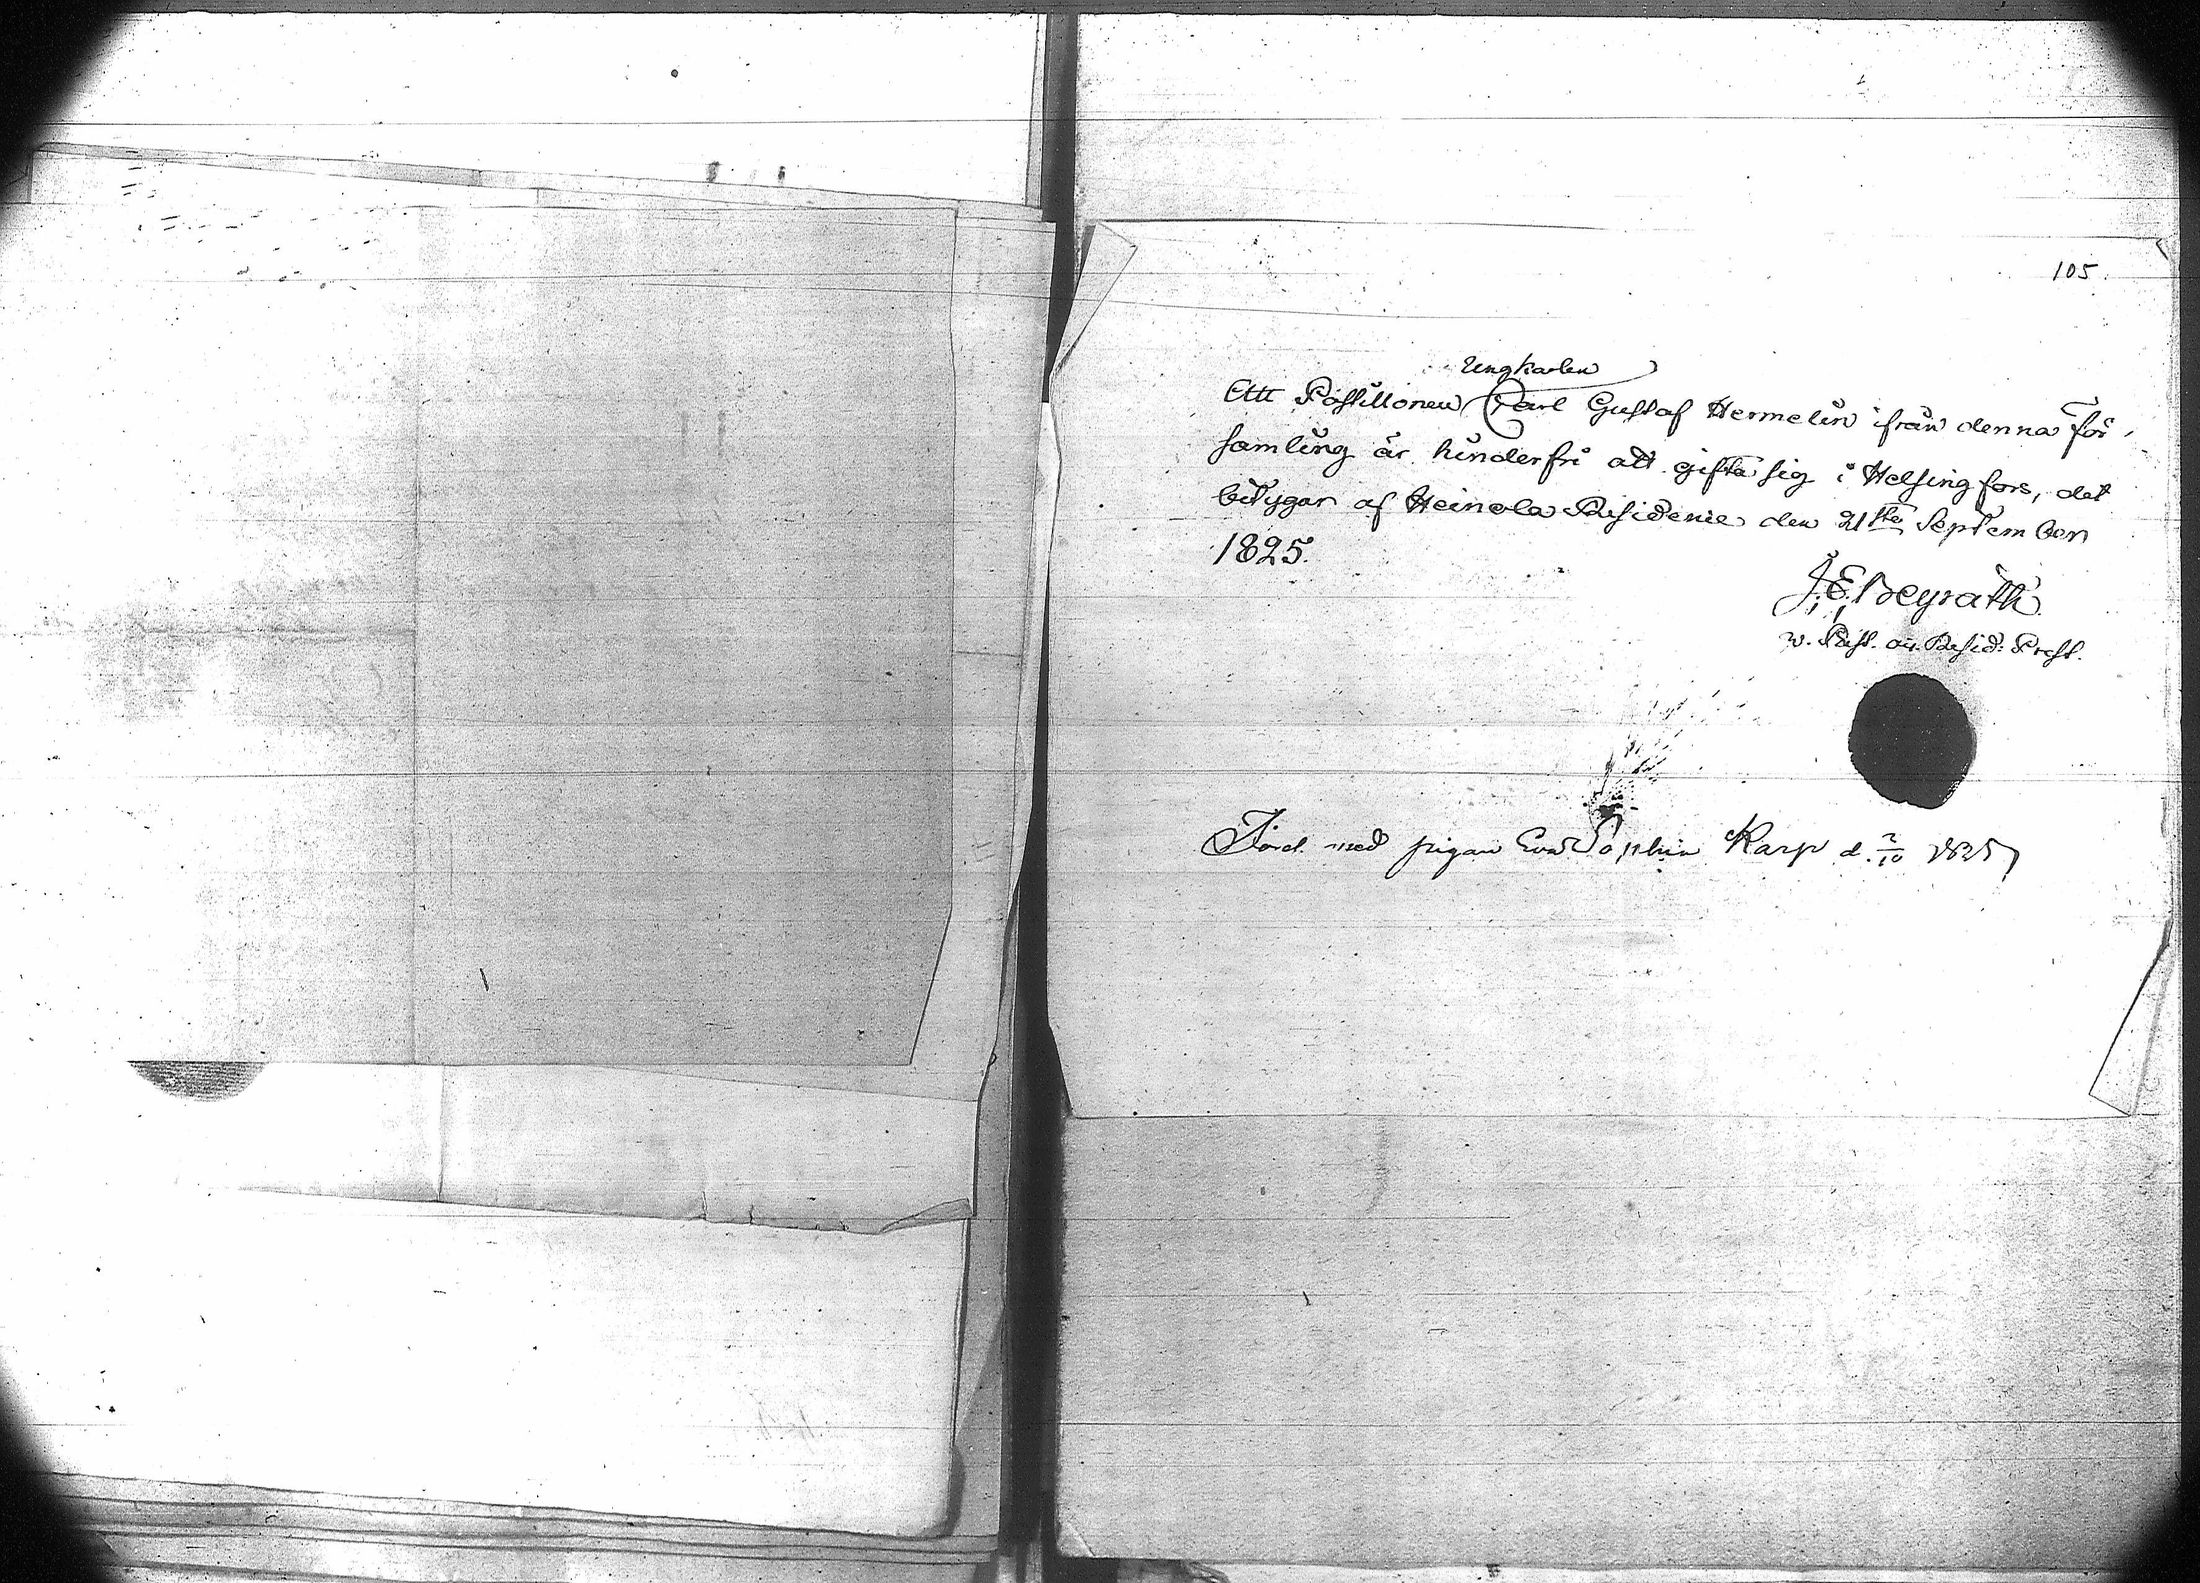 105.
Ungkarlen
Att Postillonen Carl Gustaf Hermelin ifrån denna för-
samling är hinderfri att gifta sig i Helsingfors, det
betygar af Heinola Residence den 21sta September
1825.
J. E. Beyrath
v. Past. o. Resid: Prest.
med pigan Eva Sophia Karp d. 2/10 1825